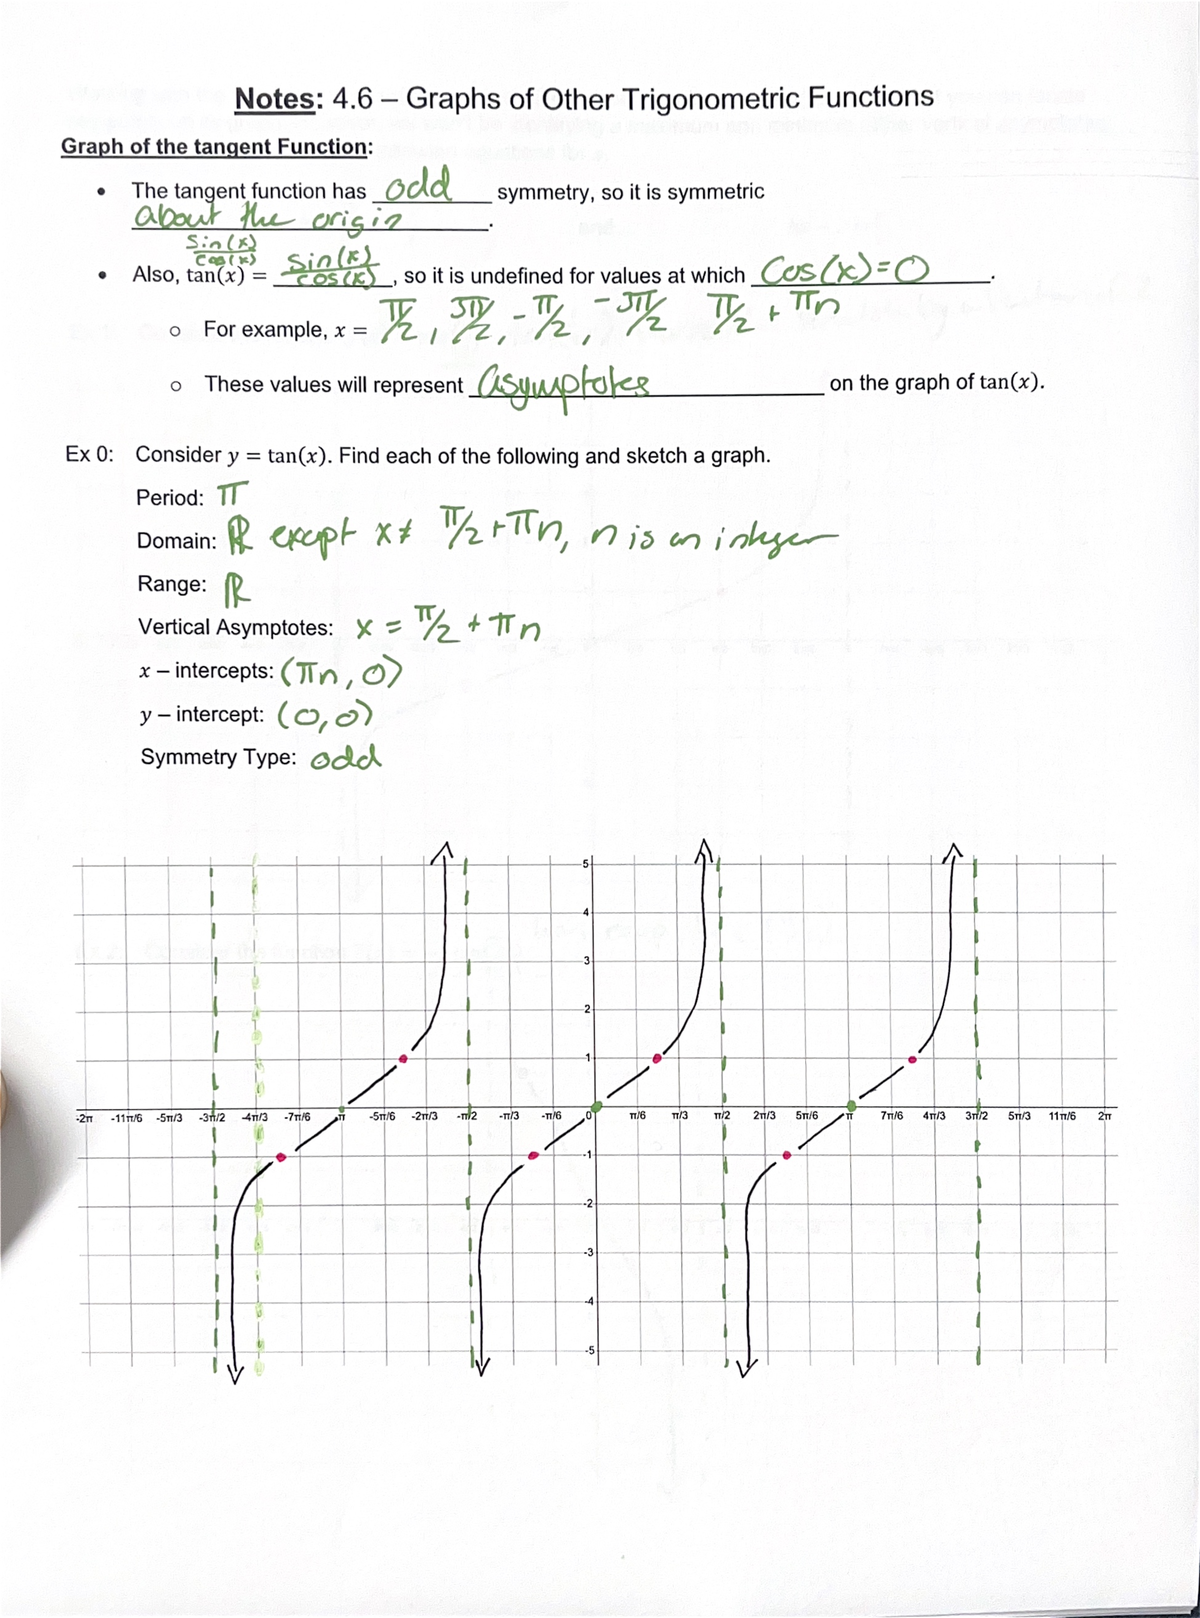 Notes: 4.6 – Graphs of Other Trigonometric Functions
Graph of the tangent Function:
• The tangent function has odd symmetry, so it is symmetric
about the origin.
sin(x)/cos(x)
• Also, tan(x) = sin(x)/cos(x), so it is undefined for values at which cos(x)=0.
o For example, x = π/2, 3π/2, -π/2, -3π/2 π/2 + πn
o These values will represent Asymptotes on the graph of tan(x).
Ex 0: Consider y = tan(x). Find each of the following and sketch a graph.
Period: π
Domain: ℝ except x≠ π/2+πn, n is an integer
Range: ℝ
Vertical Asymptotes: x = π/2 + πn
x – intercepts: (πn, 0)
y – intercept: (0,0)
Symmetry Type: odd
5
4
3
2
1
-2π -11π/6 -5π/3 -3π/2 -4π/3 -7π/6 -π -5π/6 -2π/3 -π/2 -π/3 -π/6 0 π/6 π/3 π/2 2π/3 5π/6 π 7π/6 4π/3 3π/2 5π/3 11π/6 2π
-1
-2
-3
-4
-5